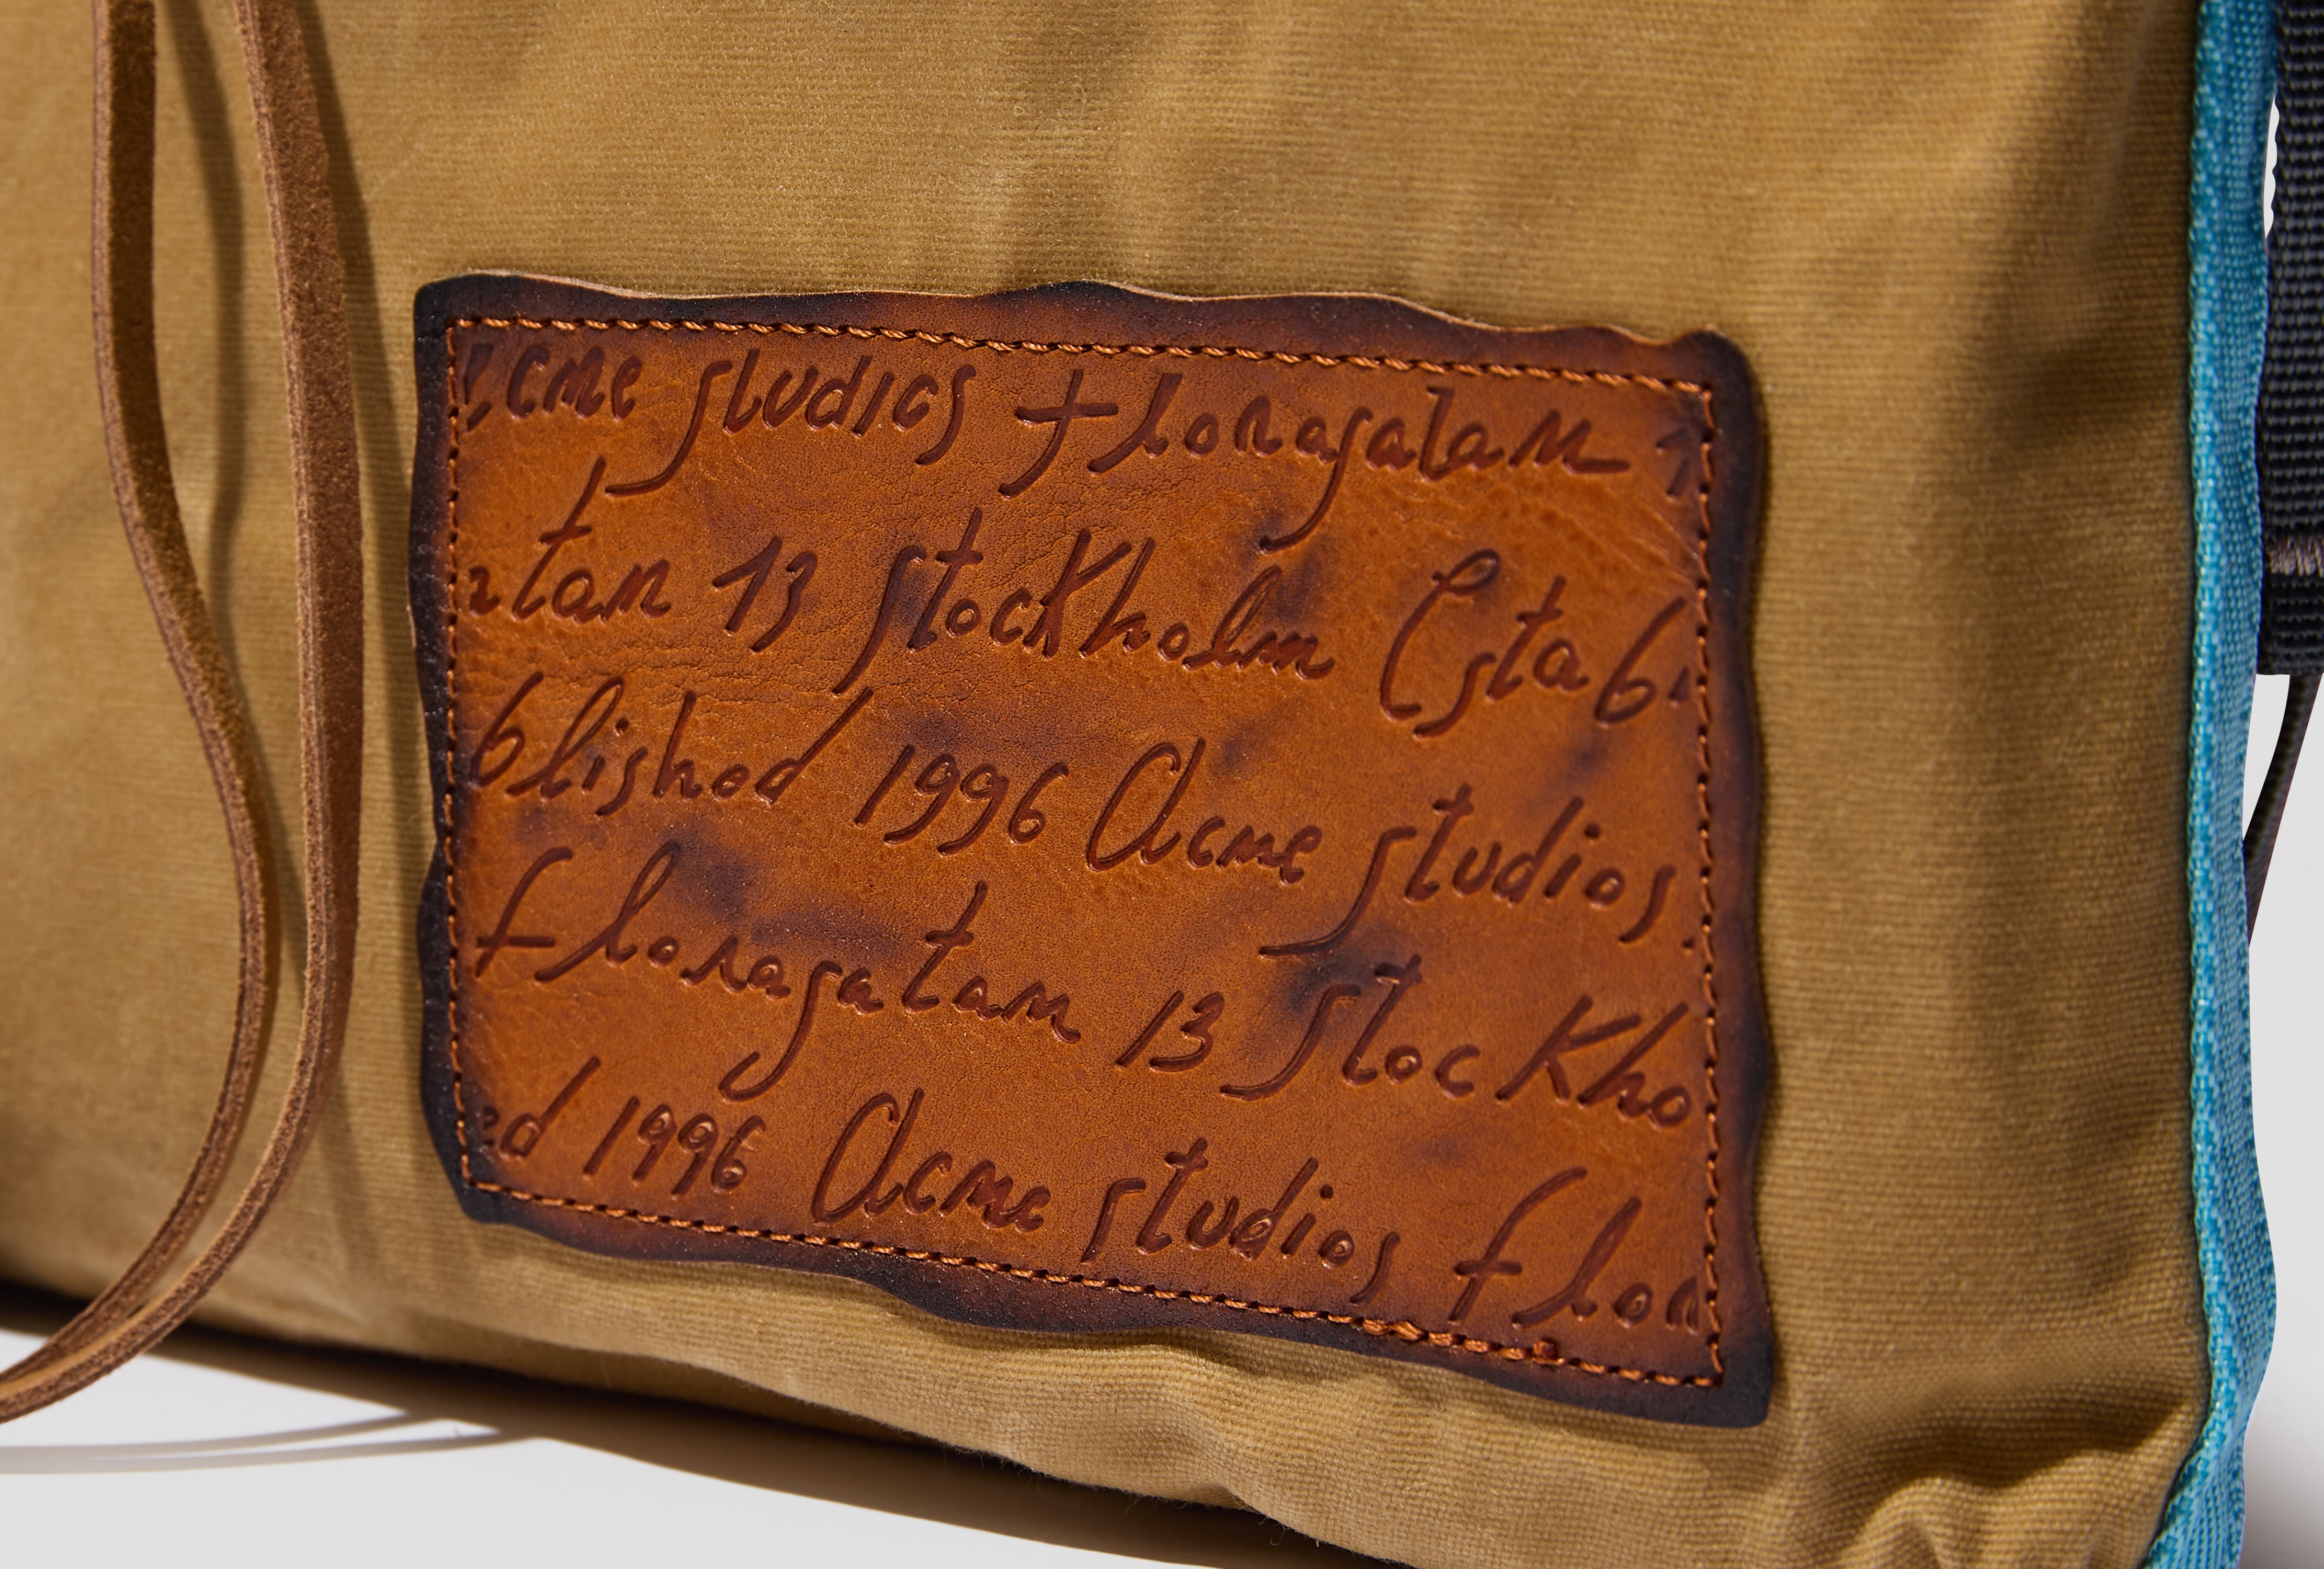 Acme studios floragatan 1
atan 13 stockholm Estab
blished 1996 Acme studios
floragatan 13 stockho
ed 1996 Acme studios flor